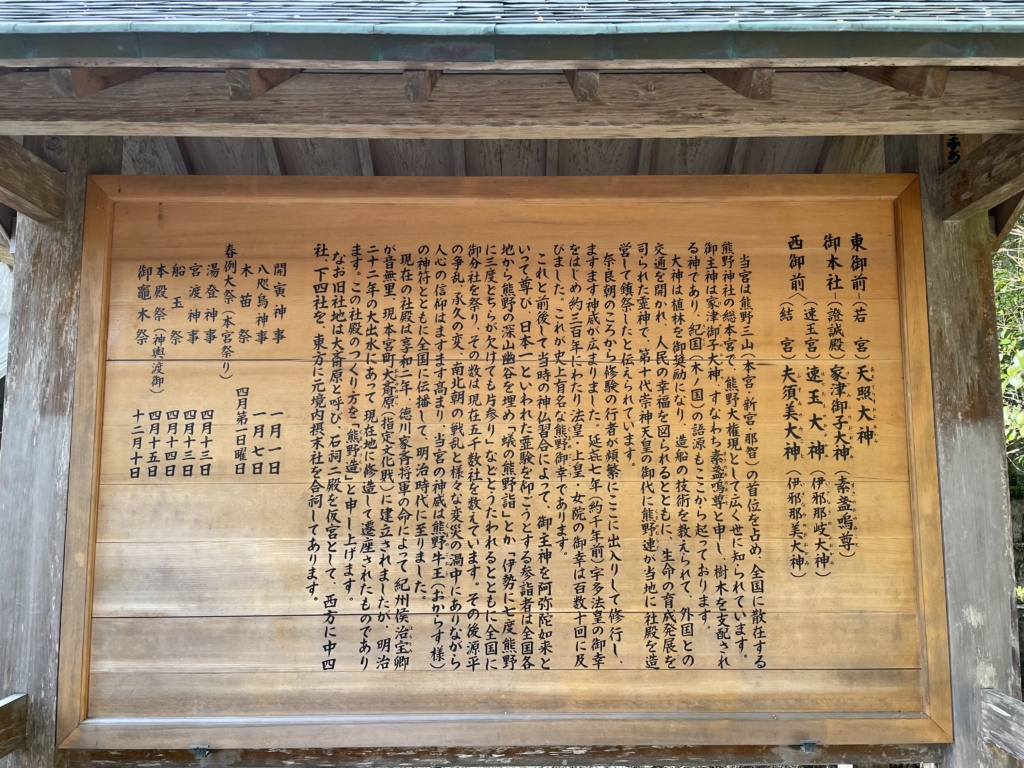 東御前―(若 宮)天照大神
御本社―(證誠殿)家津御子大神(素盞嗚尊)
(速玉宮)速玉大神(伊邪那岐大神)
西御前〈(結 宮)夫須美大神(伊邪那美大神)
当宮は熊野三山(本宮・新宮・那智)の首位を占め、全国に散在する
熊野神社の総本宮で、熊野大権現として広く世に知られています。
御主神は家津御子大神、すなわち素盞嗚尊と申し、樹木を支配され
る神であり、紀国(木ノ国)の語源もここから起っております。
大神は植林を御奨励になり、造船の技術を教えられて、外国との
交通を開かれ、人民の幸福を図られるとともに、生命の育成発展を
司られた霊神で、第十代崇神天皇の御代に熊野連が当地に社殿を造
営して鎮祭したと伝えられています。
奈良朝のころから修験の行者が頻繁にここに出入りして修行し、
ますます神威が広まりました。延㐂七年(約千年前)宇多法皇の御幸
をはじめ約三百年にわたり法皇・上皇・女院の御幸は百数十回に及
びました。これが史上有名な熊野御幸であります。
これと前後して当時の神仏習合によって、御主神を阿弥陀如来と
いって尊び、日本一といわれた霊験を仰ごうとする参詣者は全国各
地から熊野の深山幽谷を埋め「蟻の熊野詣」とか「伊勢に七度熊野
に三度どちらが欠けても片参り」などとうたわれるとともに全国に
御分社を祭り、その数は現在五千数社を数えています。その後源平
の争乱、承久の変、南北朝の戦乱と様々な変災の渦中にありながら
人心の信仰はますます高まり、当宮の神威は熊野牛王(おからす様)
の神符とともに全国に伝播して、明治時代に至りました。
現在の社殿は享和二年、徳川家斉将軍の命によって紀州侯治宝卿
が音無里、現本宮町大斎原(指定文化戝)に建立されましたが、明治
二十二年の大出水にあって現在地に修造して遷座されたものであり
ます。この社殿のつくり方を「熊野造」と申し上げます。
なお旧社地は大斎原と呼び、石祠二殿を仮宮として、西方に中四
社、下四社を、東方に元境内摂末社を合祠してあります。
開寅神事 一月一日
八咫烏神事 一月七日
木苗祭 四月第二日曜日
春例大祭(本宮祭り)
湯登神事 四月十三日
宮渡神事 四月十三日
船玉祭 四月十四日
本殿祭(神輿渡御) 四月十五日
御竈木祭 十二月十日